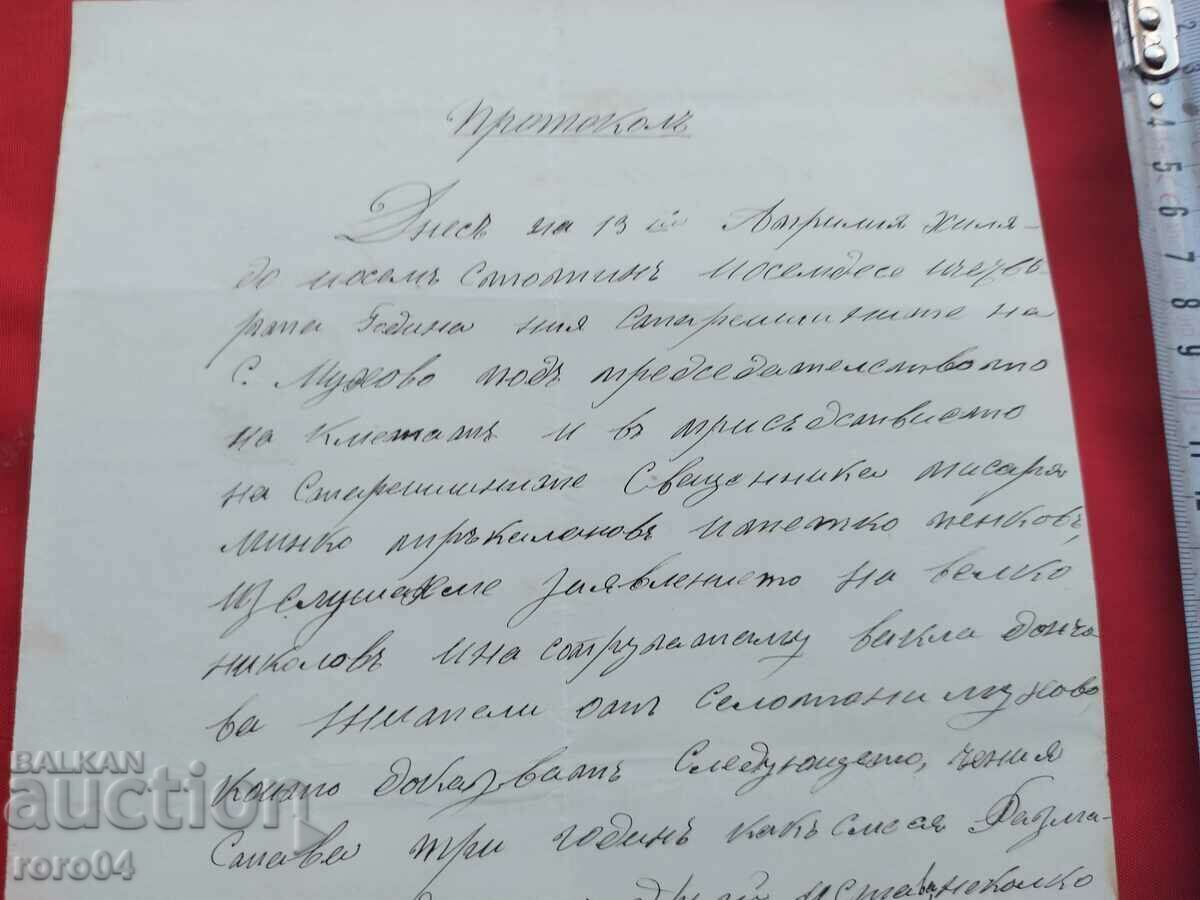 Протоколъ
Днесъ на 13 ий Априлия хиля-
до иосемъ стотинъ иосемдесе ичетвъ-
рта година ния старейшините на
с. Мухово подъ председателството
на Кметатъ и въ присъдствието
на старейшините Свещенника писаря
Минко пръкалановъ ипетко пенковъ,
изслушахме заявлението на велко
николовъ ина сопругатаму вакла донче
ва жители отъ Селотони мухово,
които доказватъ следующето, чения
става три годинъ какъ смеся Разма-
исъ неколко
BALKAN
auction
roro04
4
5
6
7
8
9
11
12